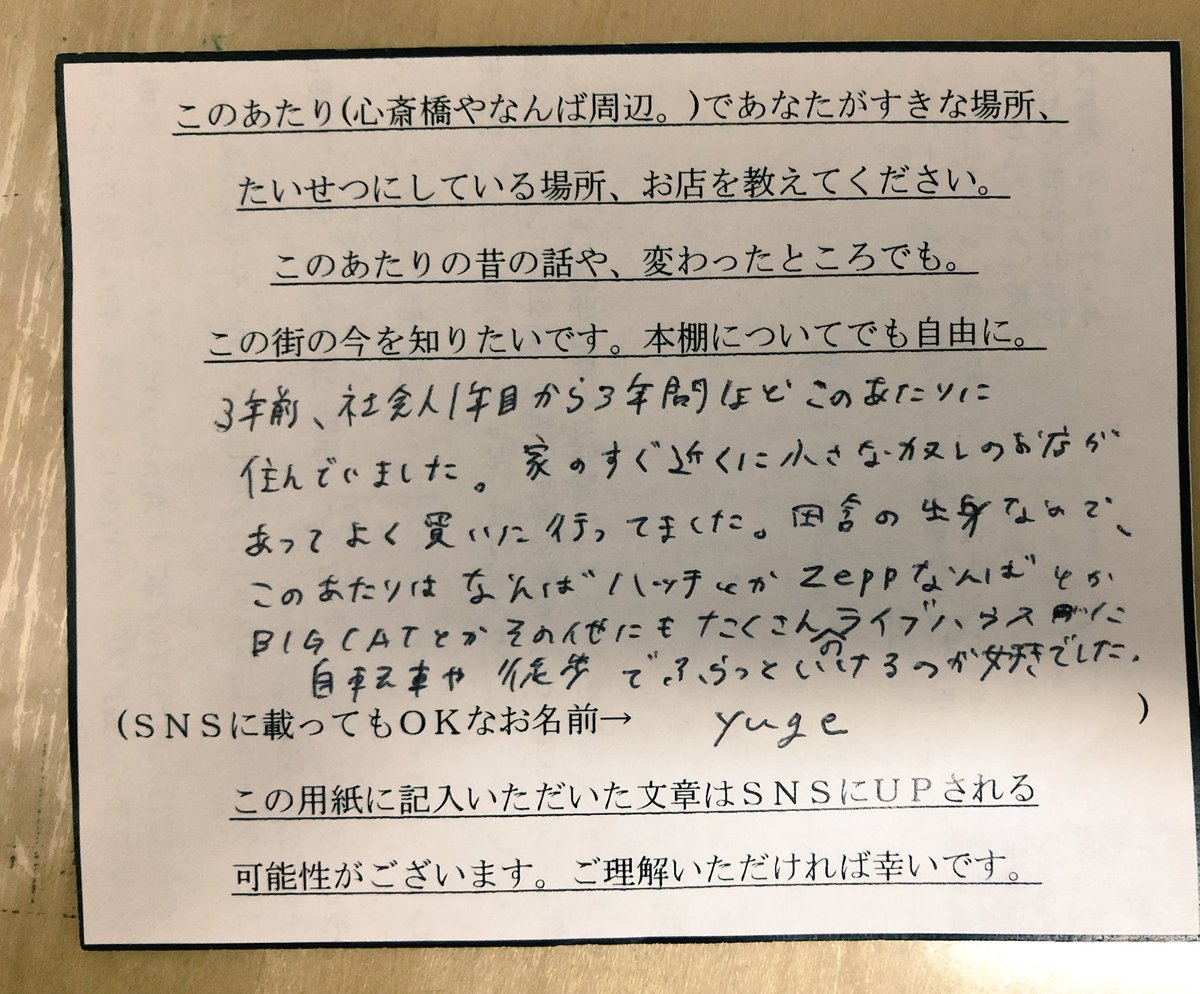 このあたり(心斎橋やなんば周辺。)であなたがすきな場所、
たいせつにしている場所、お店を教えてください。
このあたりの昔の話や、変わったところでも。
この街の今を知りたいです。本棚についてでも自由に。
3年前、社会人1年目から3年間ほどこのあたりに
住んでいました。家のすぐ近くに小さなカヌレのお店が
あってよく買いに行ってました。田舎の出身なので、
このあたりはなんばハッチとかZeppなんばとか
BIGCATとかその他にもたくさんのライブハウスに
自転車や徒歩でふらっといけるのが好きでした。
(SNSに載ってもOKなお名前→ yuge )
この用紙に記入いただいた文章はSNSにUPされる
可能性がございます。ご理解いただければ幸いです。